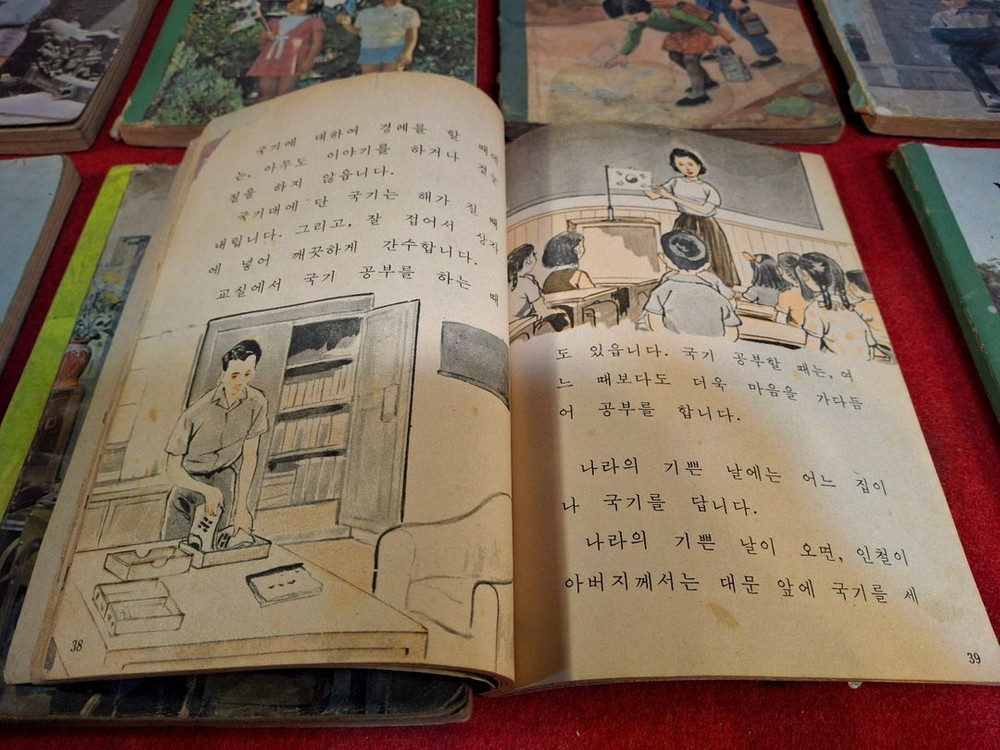 국기에 대하여 경례를 할 때에
는, 아무도 이야기를 하거나 절눈
질을 하지 않읍니다.
국기대에 단 국기는 해가 질 때
내립니다. 그리고, 잘 접어서 상자
에 넣어 깨끗하게 간수합니다.
교실에서 국기 공부를 하는 때
38
도 있읍니다. 국기 공부할 때는, 여
느 때보다도 더욱 마음을 가다듬
어 공부를 합니다.
나라의 기쁜 날에는 어느 집이
나 국기를 답니다.
나라의 기쁜 날이 오면, 인철이
아버지께서는 대문 앞에 국기를 세
39